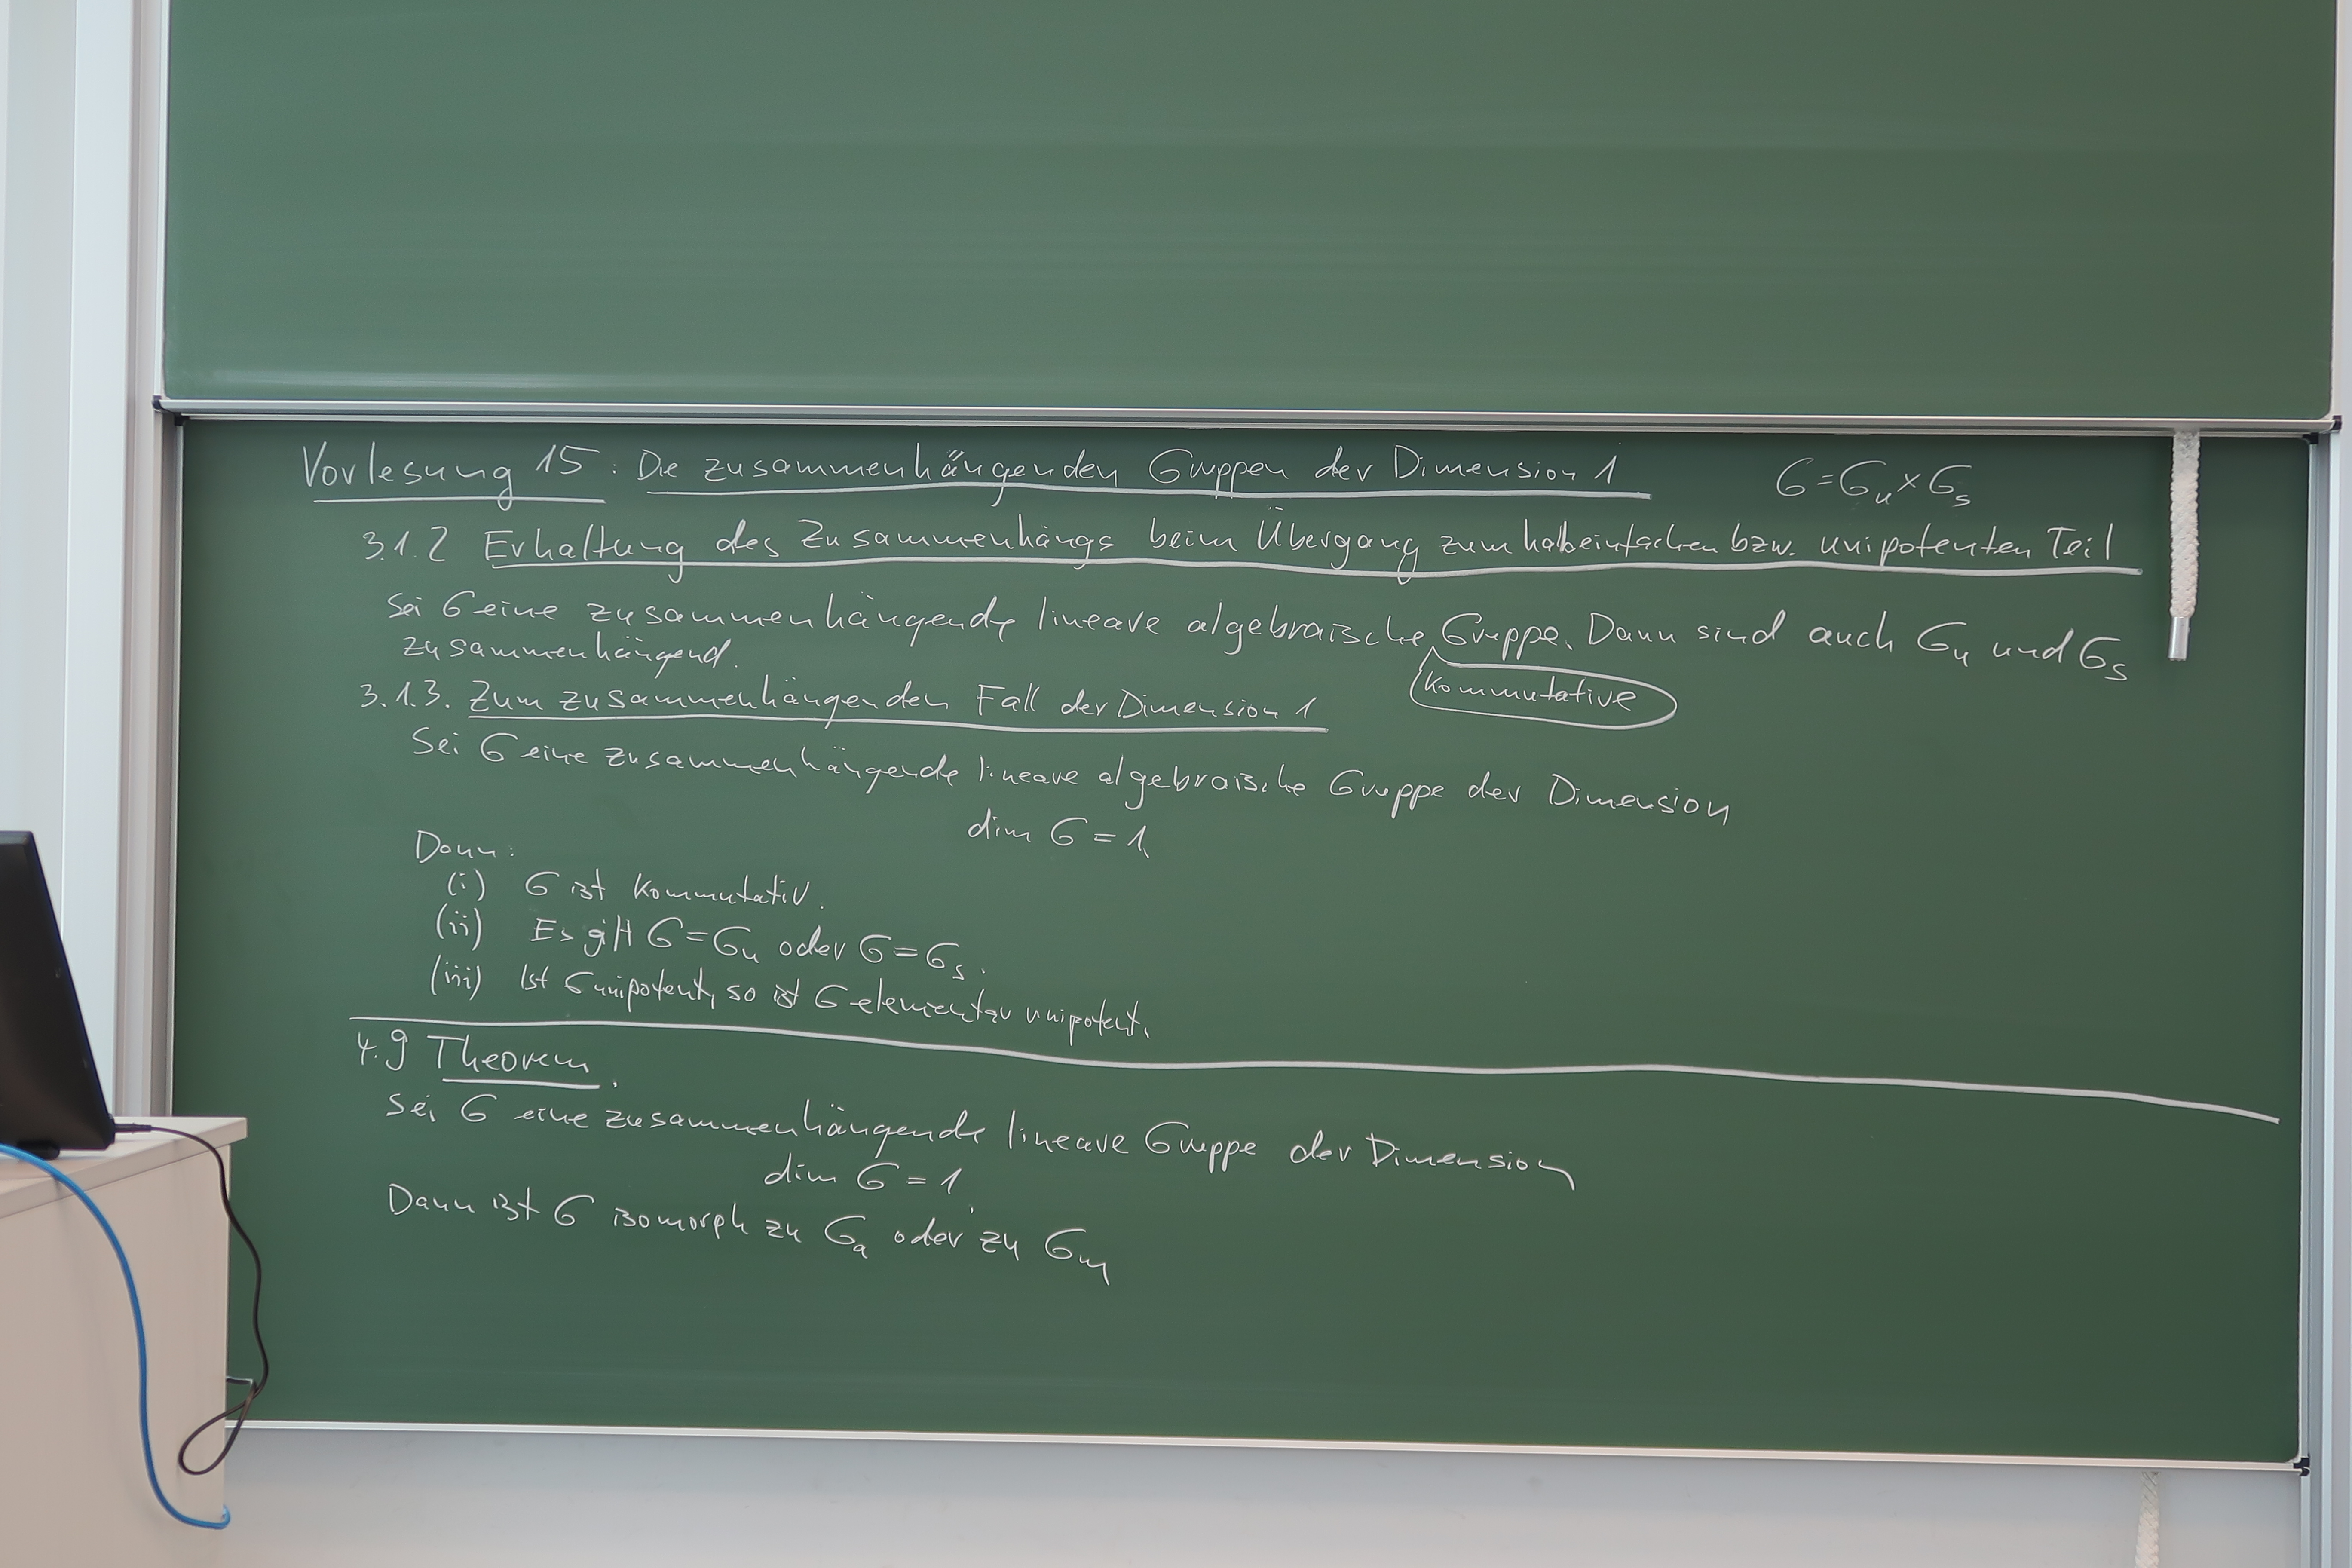 Vorlesung 15: Die zusammenhängenden Gruppen der Dimension 1 G = G_u × G_s
3.1.2 Erhaltung des Zusammenhangs beim Übergang zum halbeinfachen bzw. unipotenten Teil
Sei G eine zusammenhängende lineare algebraische Gruppe. Dann sind auch G_u und G_s
zusammenhängend.
kommutative
3.1.3. Zum zusammenhängenden Fall der Dimension 1
Sei G eine zusammenhängende lineare algebraische Gruppe der Dimension
dim G = 1.
Dann:
(i) G ist kommutativ.
(ii) Es gilt G = G_u oder G = G_s.
(iii) Ist G unipotent, so ist G elementar unipotent.
4.9 Theorem.
Sei G eine zusammenhängende lineare Gruppe der Dimension
dim G = 1.
Dann ist G isomorph zu G_a oder zu G_m